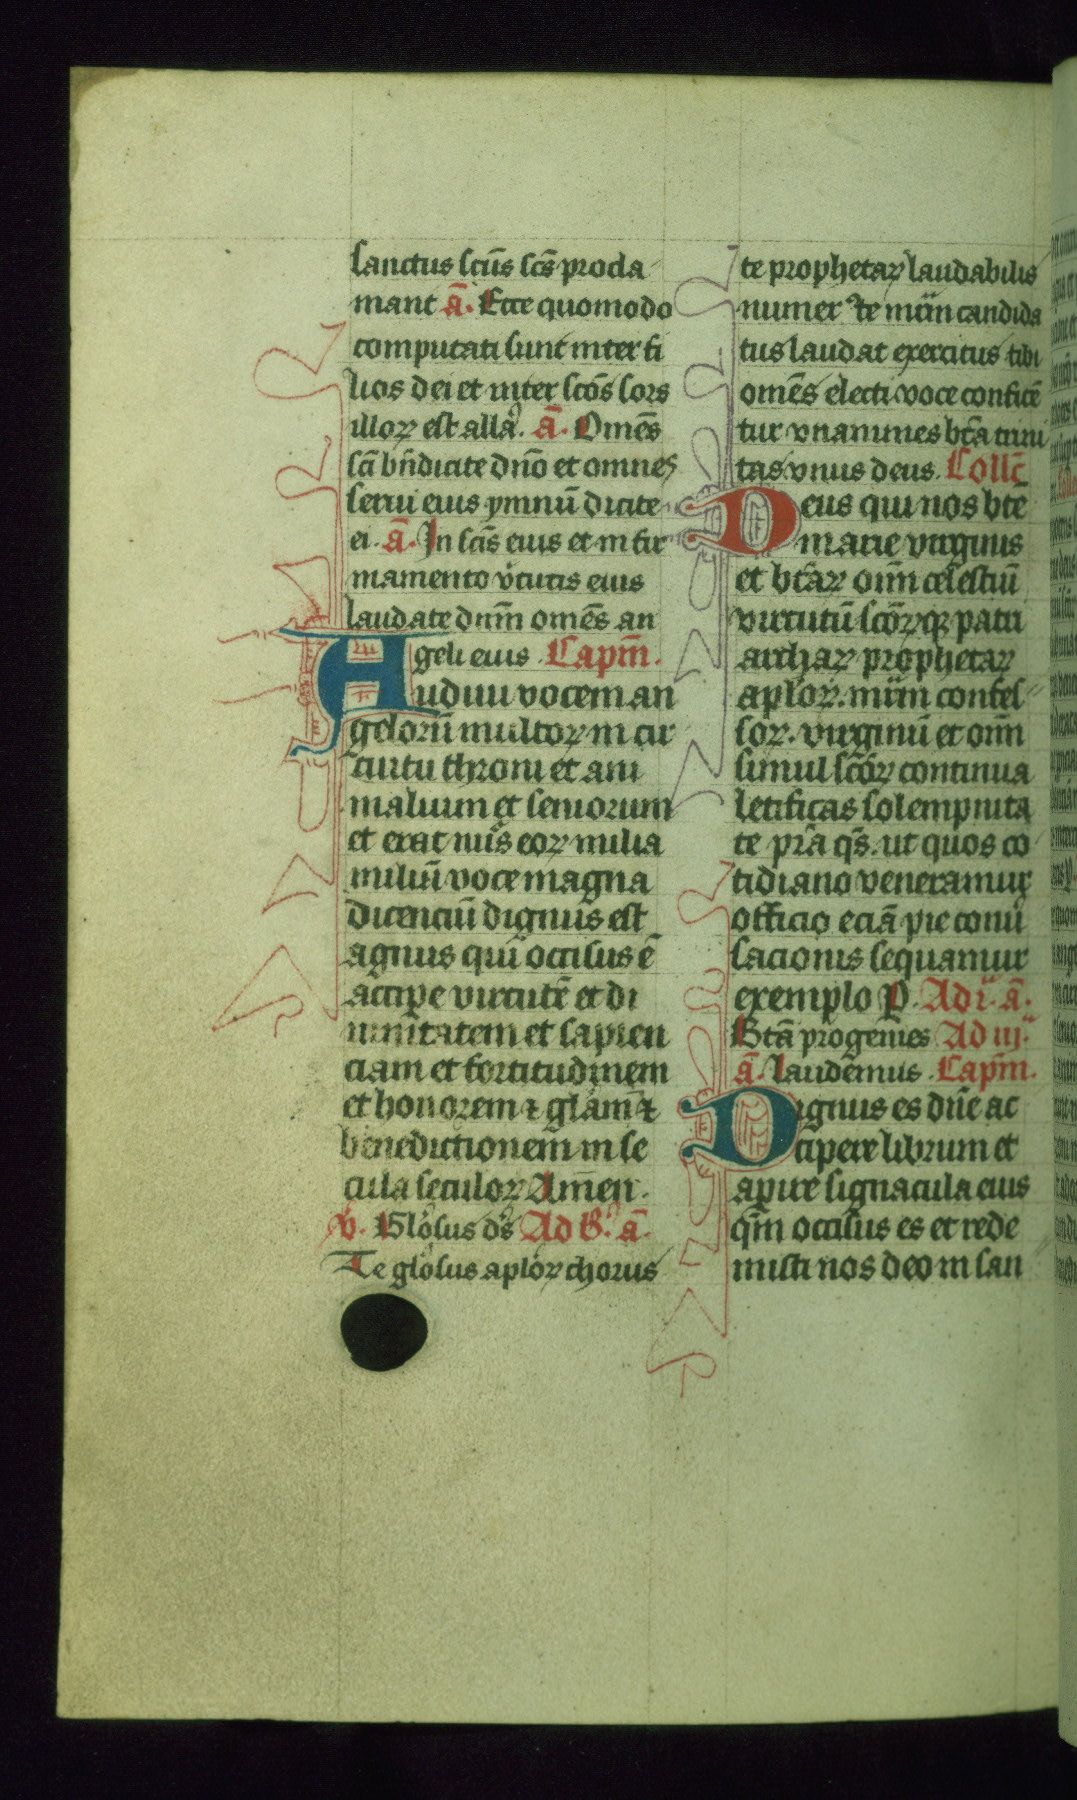 sanctus scūs scs̄ procla
mant ā. Ecce quomodo
computati sunt inter fi
lios dei et inter scōs sors
illoꝝ est alla. ā. Omēs
scī bn̄dicite dn̄o et omnes
serui eius ymnū dicite
ei. ā. In scīs eius et in fir
mamento v̾tutis eius
laudate dnm̄ omēs an
geli eius. Capm̄.
Audiui vocem an
gelorū multoꝝ in cir
cuitu throni et ani
malium et seniorum
et erat nūs eoꝝ milia
miliū voce magna
dicenciū dignus est
agnus qui occisus ē
accipe virtutē et di
uinitatem et sapien
ciam et fortitudinem
et honorem ⁊ glām ⁊
benedictionem in se
cula seculoꝝ Amen.
v̄. Glōsus ds̄ Ad B. ā.
Te glōsus aploꝝ chorus
te prophetaꝝ laudabilis
numer⁹ te mr̄m candida
tus laudat exercitus tibi
omēs electi voce confitē
tur vnanimes btā trini
tas vnus deus. Collc̄
Deus qui nos bte
marie virginis
et btāꝝ om̄ celestiū
virtutū scōꝝqꝫ patri
archaꝝ prophetaꝝ
aploꝝ. mr̄m confes
soꝝ. virginū et om̄
simul scōꝝ continua
letificas solempnita
te pr̄a qs̄. ut quos co
tidiano veneramur
officio eciā pie conu̾
sacionis sequamur
exemplo P. Ad i. ā.
Btā progenies Ad iij.
ā. Laudemus. Capm̄.
Dignus es dn̄e ac
cipere librum et
apire signacula eius
qm̄ occisus es et rede
misti nos deo in san